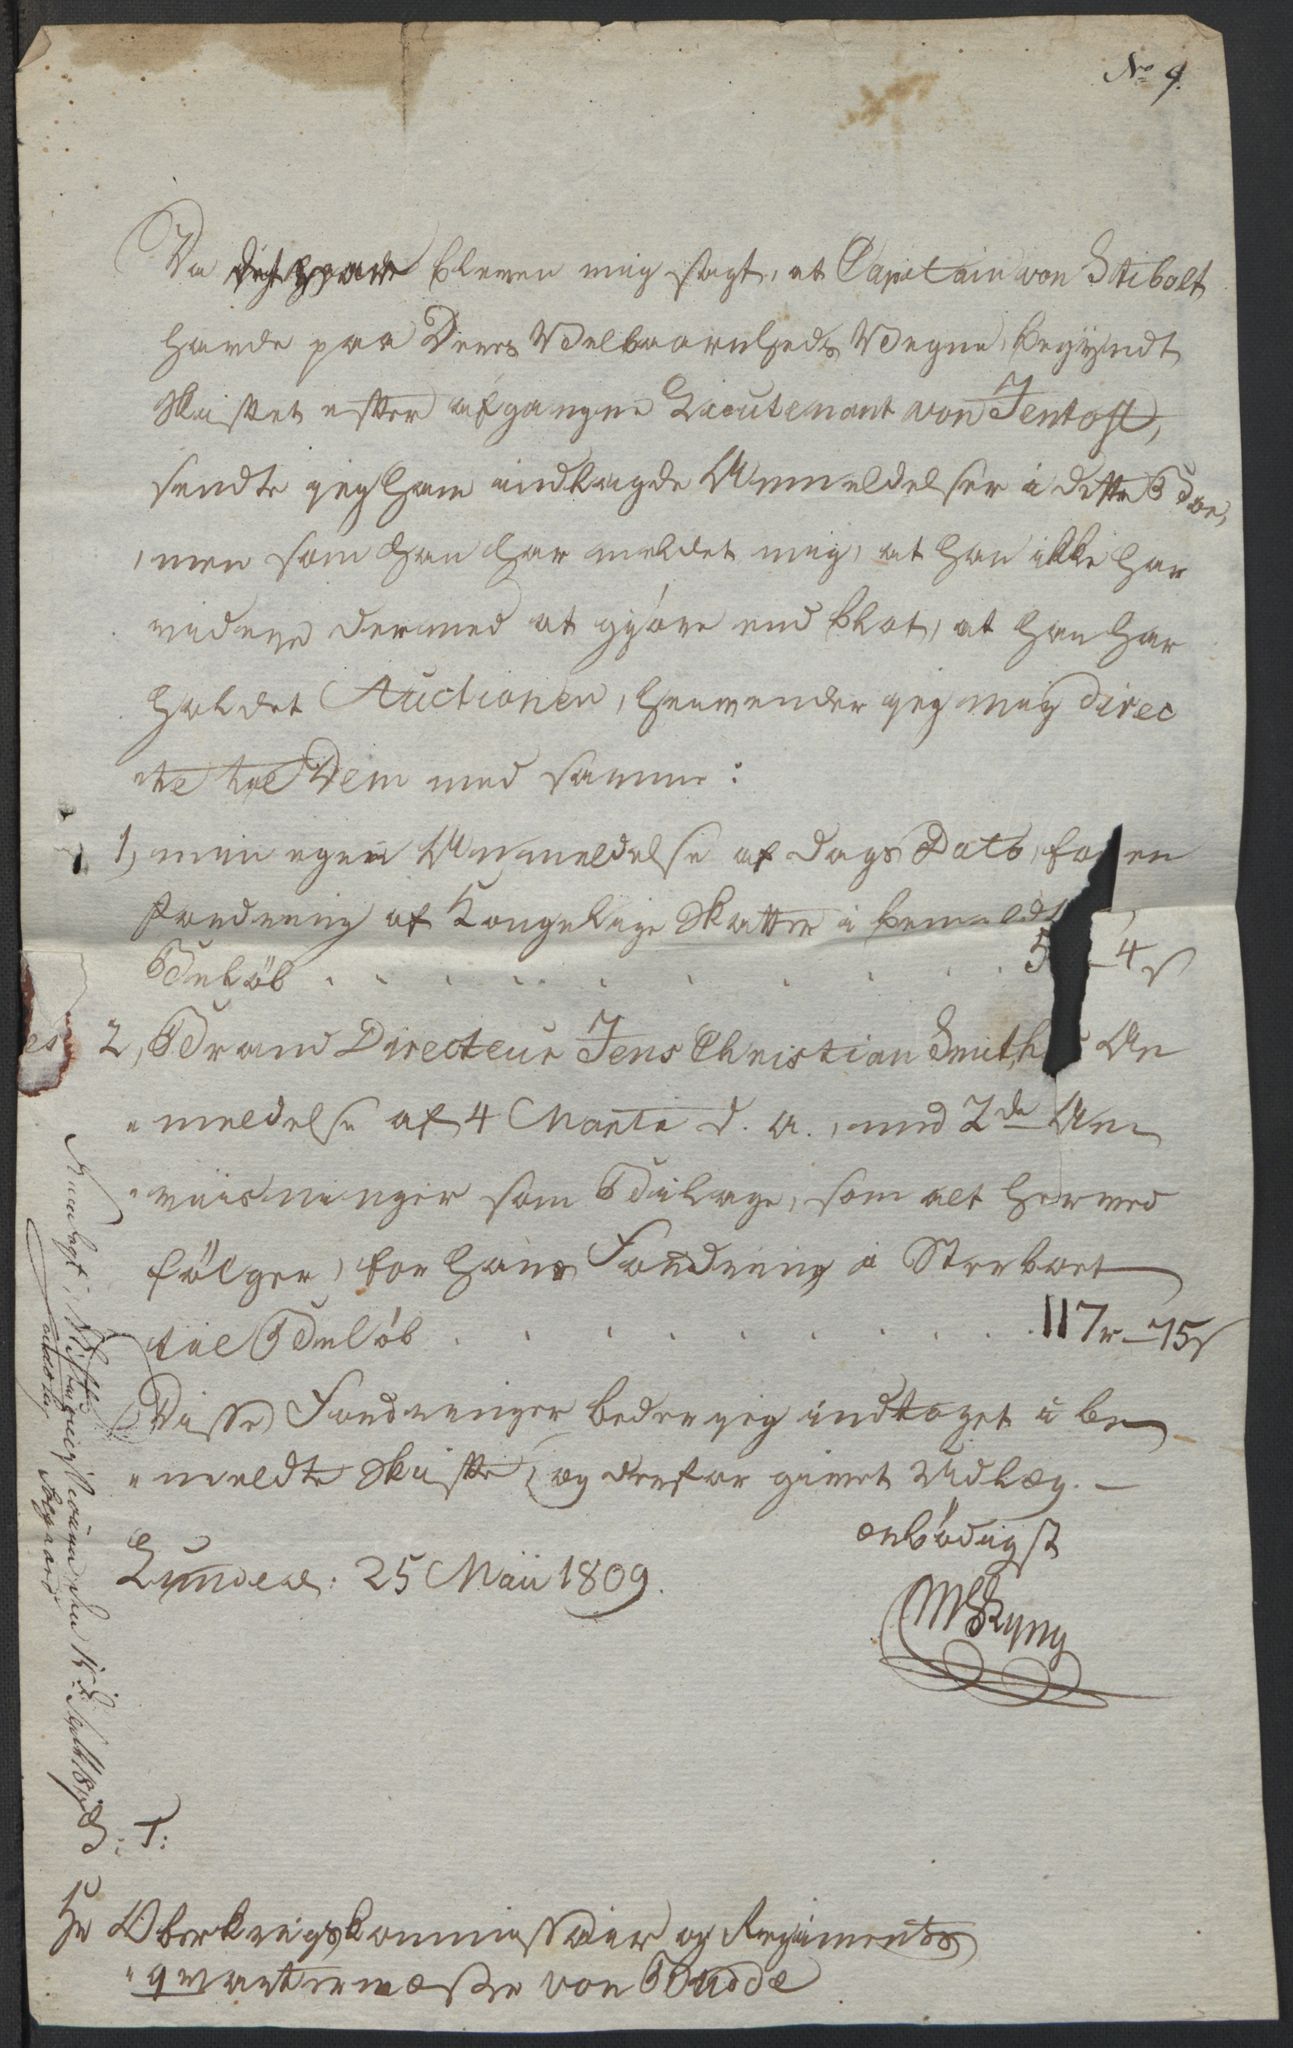 No 9.
Da det har bleven mig sagt, at Capitain von Stibolt
havde paa Deres Velbaarenheds Vegne, begyndt
Skiftet efter afgangne Lieutenant von Jentoft,
sendte jeg ham indlagde Anmeldelser i dette Boe,
men som han har meldet mig, at han ikke har
videre dermed at gjøre end blot, at han har
holdet Auctionen, henvender jeg mig direc
"te til Dem med samme:
1, min egen Anmeldelse af Dags Dato, for en
Fordring af Kongelige Skatter i bemeldte
Beløb . . . . . . . . . 5 - 4 s
2, Brand Directeur Jens Christian Smiths An
"meldelse af 4 Martii d. A., med 2de An
"viisninger som Bilage, som alt hermed
følger, for hans Fordring i Sterboet
til Beløb . . . . . . . . . 117 r - 75 s
Disse Fordringer beder jeg indtaget i be
"meldte Skifte, og derfor givet Udlæg. —
Lundene. 25 Maii 1809.
ærbødigst
Ryng
S: T:
Hr Oberkrigskommissair og Regiments
"qvartermæster von Budde
Fremlagt i Skifte den 14d